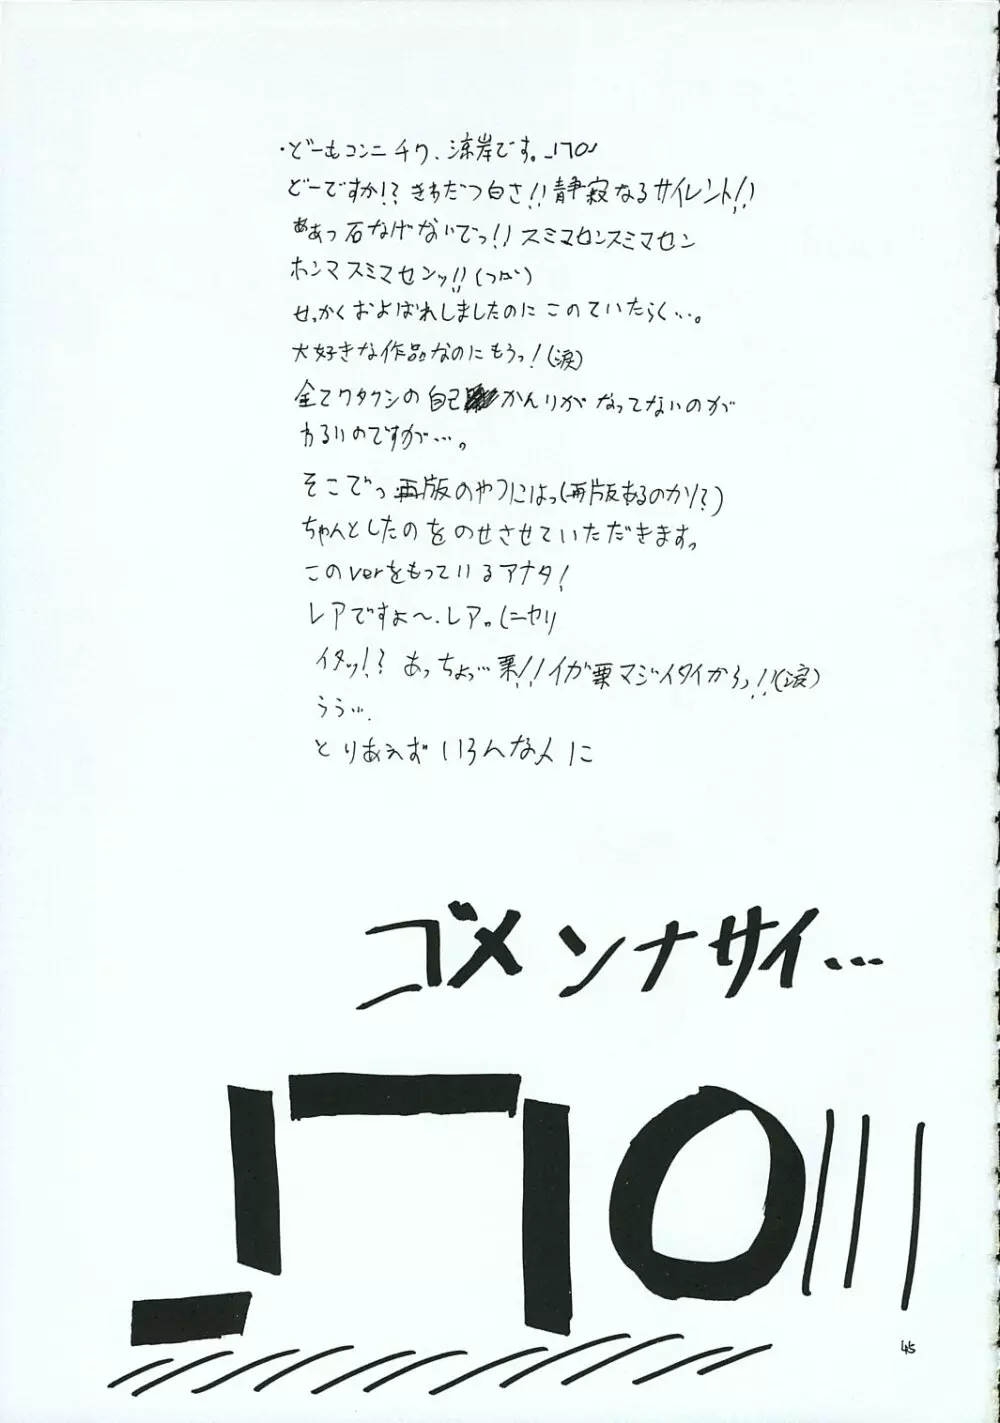 ・どーもコンニチワ、涼岸です。_| ̄|○
どーですか!? きわだつ白さ!! 静寂なるサイレント!!
ああっ石なげないでっ!! スミマセンスミマセン
ホンマスミマセンッ!!(つぼ)
せっかくおよばれしましたのにこのていたらく…。
大好きな作品なのにもうっ!(涙)
全てワタクシの自己かんりがなってないのが
わるいのですが…。
そこでっ再版のやつにはっ(再版あるのか!?)
ちゃんとしたのをのせさせていただきますっ
このverをもっているアナタ!
レアですよ〜、レア。(ニヤリ
イタッ!? あっちょっ…栗!! イガ栗マジイタイからっ!!(涙)
うぅ…
とりあえずいろんな人に
ゴメンナサイ…
_| ̄|○|||
45